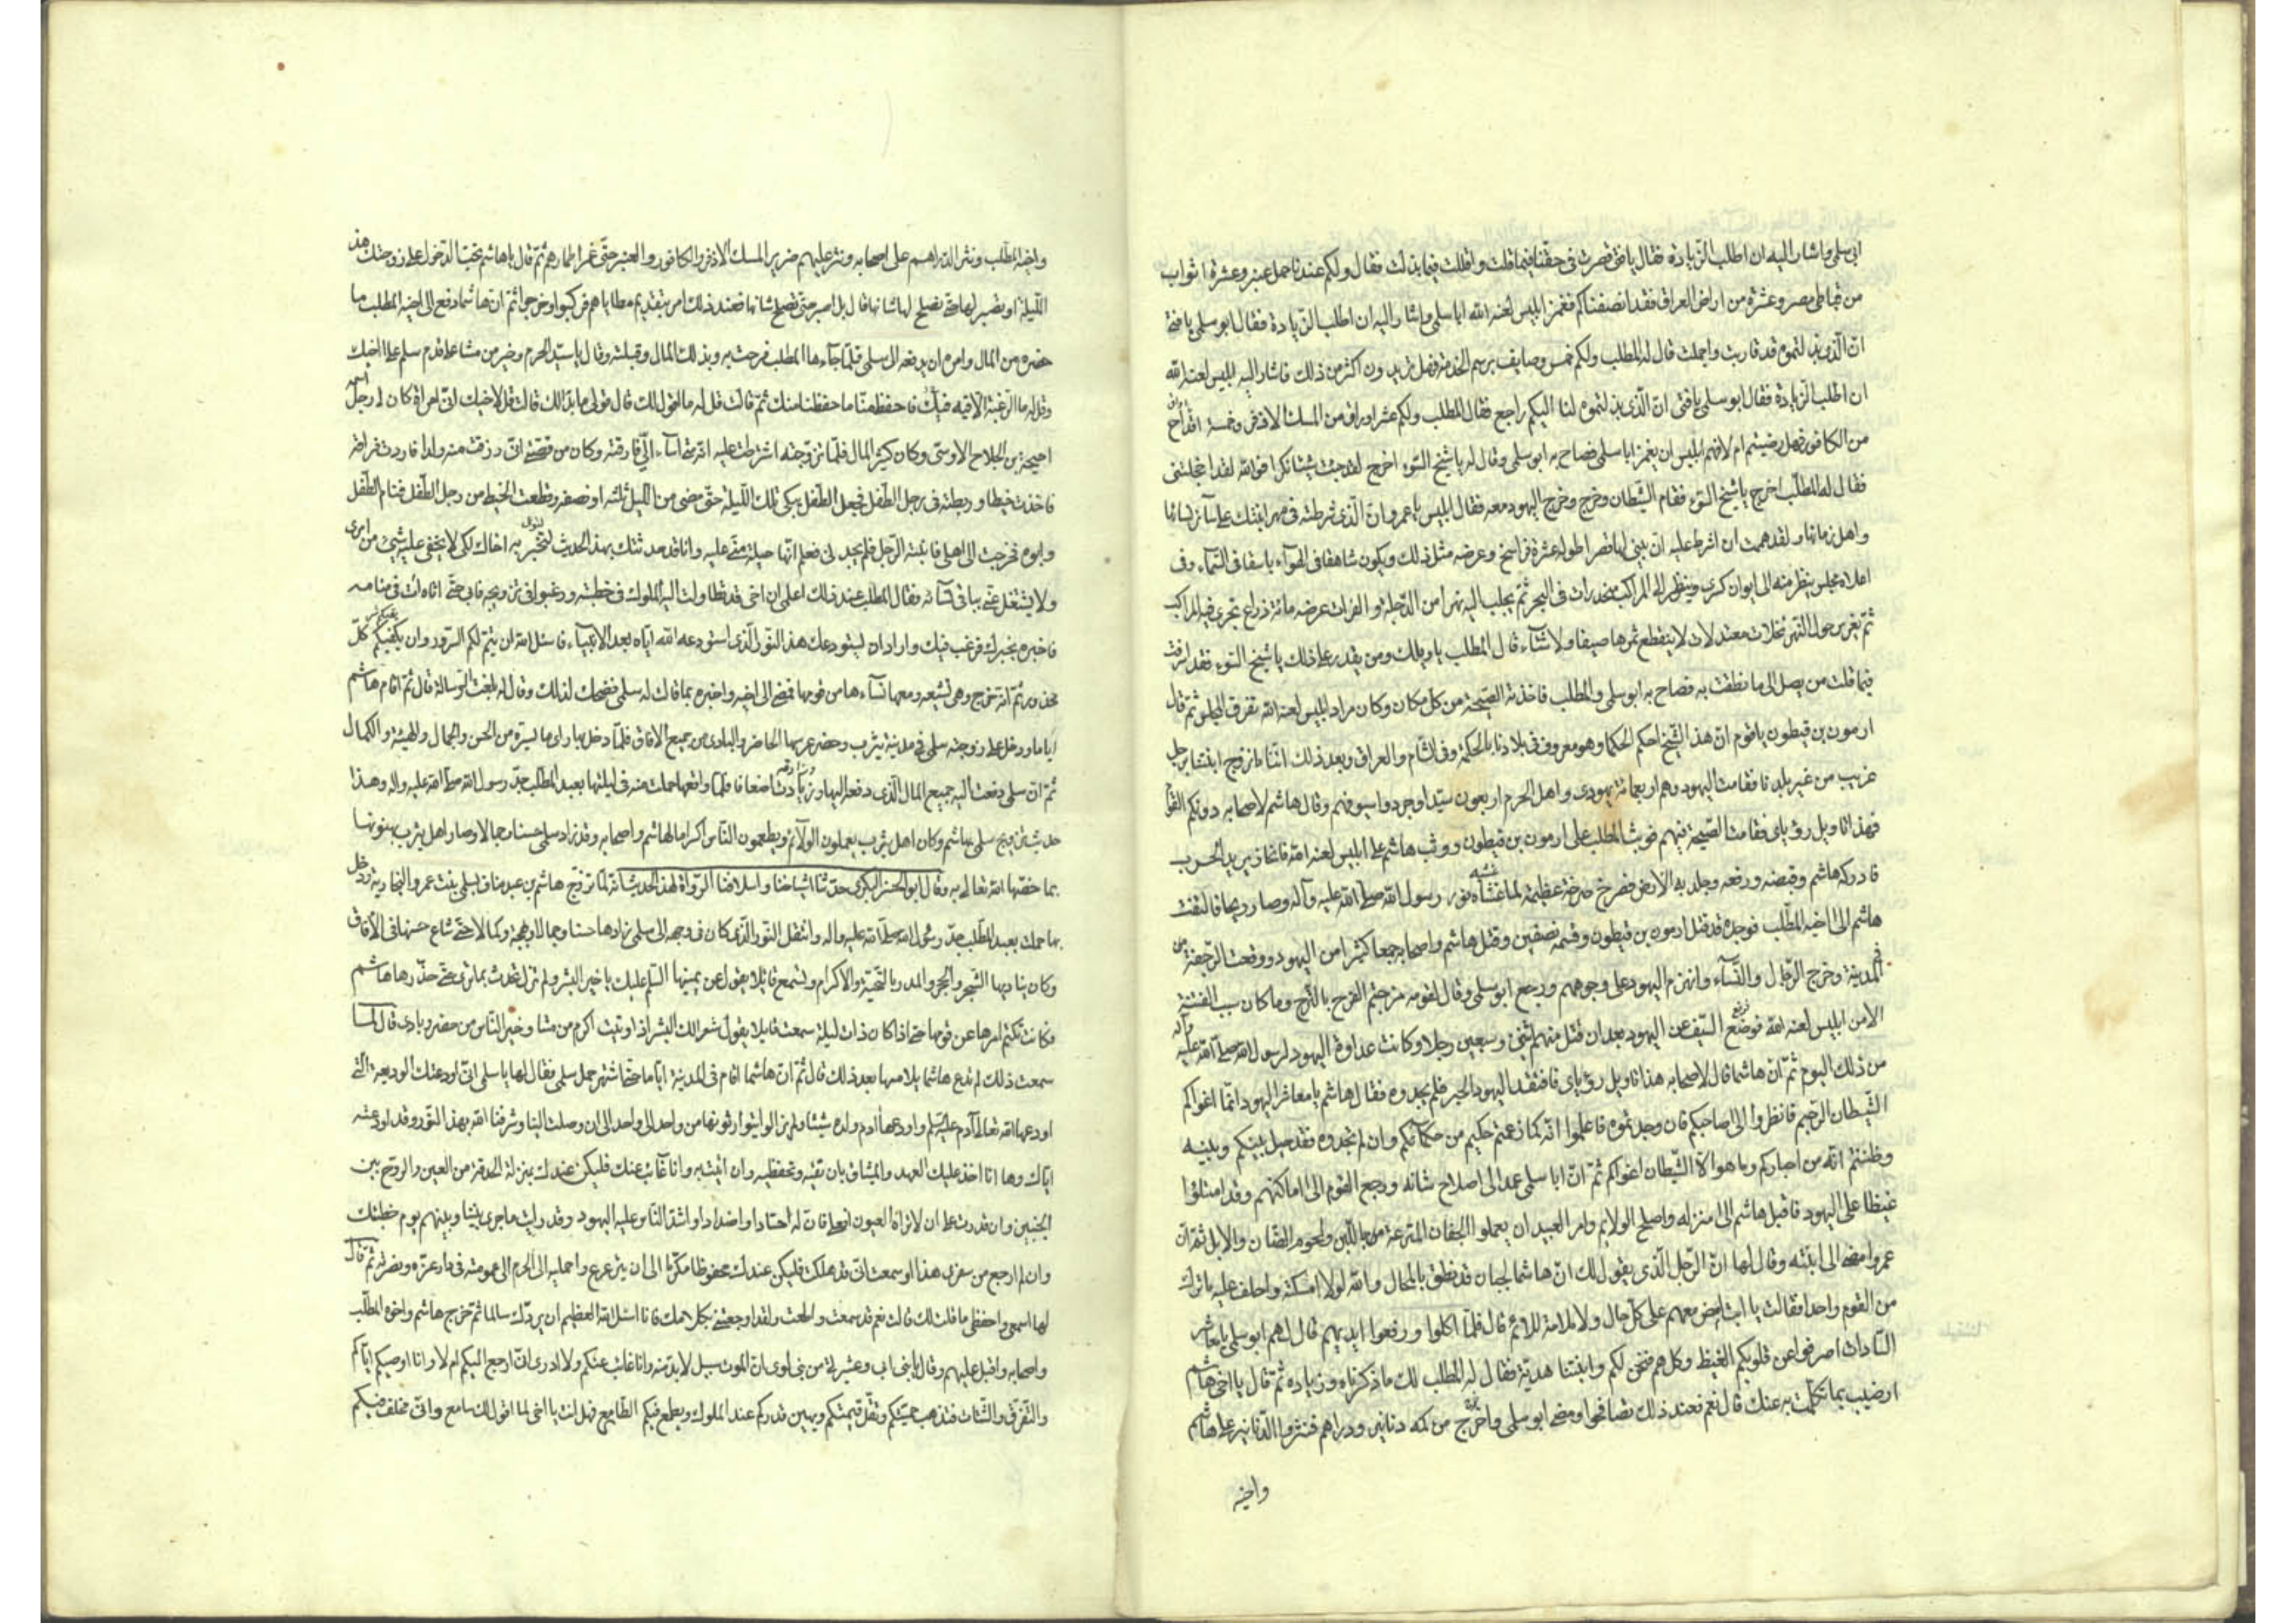 ابى سلمى واشار اليه ان اطلب الزيادة فقال يا فتى قصرت فى حقنا فيما قلت واقللت فيما بذلت فقال ولكم عندنا حمل عنبر وعشرة اثواب
من قباطى مصر وعشرة من اراض العراق فقد انصفناكم فغمز ابليس لعنه الله ابا سلمى واشار اليه ان اطلب الزيادة فقال ابو سلمى يا فتى
ان الذى بذلتموه قد قاربت واجملت قال له المطلب ولكم خمس وصايف برسم الخدمة فهل تريدون اكثر من ذلك فاشار اليه ابليس لعنه الله
ان اطلب الزيادة فقال ابو سلمى يا فتى ان الذى بذلتموه لنا اليكم راجع فقال المطلب ولكم عشر اوراق من المسك الاذفر وخمسة اقداح
من الكافور فهل رضيتم ام لا فهم ابليس ان يغمز ابا سلمى فصاح به ابو سلمى وقال له يا شيخ السوء اخرج لقد جئت شيئا نكرا فوالله لقد اخجلتنى
فقال له المطلب اخرج يا شيخ السوء فقام الشيطان وخرج وخرج اليهود معه فقال ابليس يا عمرو ان الذى شرطته فى مهر ابنتك على ساير نسائها
واهل زمانها ولقد هممت ان اشرط عليه ان يبنى لها قصرا طوله عشرة فراسخ وعرضه مثل ذلك ويكون شاهقا فى الهوآء باسقا فى السمآء وفى
اعلاه مجلس ينظر منه الى ايوان كسرى وينظر الى المراكب منحدرات فى البحر ثم يجلب اليه نهرا من الدجلة والفرات عرضه مائة ذراع تجرى فيه المراكب
ثم يغرس حول النهر نخلات معتدلات لا ينقطع ثمرها صيفا ولا شتآء قال المطلب يا ويلك ومن يقدر على ذلك يا شيخ السوء فقد اسرفت
فيما قلت من يصل الى ما نطقت به فصاح به ابو سلمى والمطلب فاخذته الصيحة من كل مكان وكان مراد ابليس لعنه الله تفرق المجلس ثم قال
ارمون بن قيطون يا قوم ان هذا الشيخ احكم الحكما وهو معروف فى بلادنا بالحكمة وفى الشام والعراق وبعد ذلك اننا ما نزوج ابنتنا برجل
غريب من غير بلدنا فقامت اليهود وهم اربعمائة يهودى واهل الحرم اربعون سيدا وجردوا سيوفهم وقال هاشم لاصحابه دونكم القوم
فهذا تاويل رؤياى فقامت الصيحة فيهم فوثب المطلب على ارمون بن قيطون ووثب هاشم على ابليس لعنه الله فانحاز يريد الهرب
فادركه هاشم وقبضه ورفعه وجلد به الارض فصرخ صرخة عظيمة لما غشاه نور رسول الله صلى الله عليه وآله وصار ريحا فالتفت
هاشم الى اخيه المطلب فوجده قد قتل ارمون بن قيطون وقسمه نصفين وقتل هاشم واصحابه جمعا كثيرا من اليهود ووقعت الرجفة
فى المدينة وخرج الرجال والنسآء وانهزم اليهود على وجوههم ورجع ابو سلمى وقال لقومه مزجتم الفرح بالترح وما كان سبب الفتنة
الا من ابليس لعنه الله فوضع السيف عن اليهود بعد ان قتل منهم اثنين وسبعين رجلا وكانت عداوة اليهود لرسول الله صلى الله عليه وآله
من ذلك اليوم ثم ان هاشما قال لاصحابه هذا تاويل رؤياى فافتقد اليهود الحبر فلم يجدوه فقال هاشم يا معاشر اليهود انما اغواكم
الشيطان الرجيم فانظروا الى صاحبكم فان وجدتموه فاعلموا انه كما زعمتم حكيم من حكمائكم وان لم تجدوه فقد حيل بينكم وبينه
وظننتم انه من احباركم وما هو الا الشيطان اغواكم ثم ان ابا سلمى عمد الى اصلاح شانه ورجع القوم الى اماكنهم وقد امتلؤا
غيظا على اليهود فاقبل هاشم الى منزله واصلح الولايم وامر العبيد ان يعملوا الجفان المترعة باللبن ولحوم الضان والابل ثم ان
عمروا مضى الى ابنته وقال لها ان الرجل الذى يقول لك ان هاشما لجبان قد نطق بالمحال والله لولا امسكته واحلف عليه ما ترك
من القوم واحدا فقالت يا ابت امض معهم على كل حال ولا ملامة للائم قال فلما اكلوا ورفعوا ايديهم قال لهم ابو سلمى يا معاشر
السادات اصرفوا عن قلوبكم الغيظ وكل هم فنحن لكم وابنتنا هدية فقال له المطلب لك ما ذكرناه وزياده ثم قال يا اخى هاشم
ارضيت بما تكلمت به عنك قال نعم فعند ذلك تصافحوا ومضى ابو سلمى واخرج من كمه دنانير ودراهم فنثروا الدنانير على هاشم
واخيه
واخيه المطلب ونثر الدراهم على اصحابه ونثر عليهم ضرير المسك الاذفر والكافور والعنبر حتى غمر اطمارهم ثم قال يا هاشم تحب الدخول على زوجتك هذه
الليلة او تصبر لها حتى تصلح لها شانها قال بل اصبر حتى تصلح شانها فعند ذلك امر بتقديم مطاياهم فركبوا وخرجوا ثم ان هاشما دفع الى اخيه المطلب ما
حضره من المال وامره ان يدفعه الى سلمى فلما جآءها المطلب فرحت به وبذلك المال وقبلته وقال يا سيد الحرم وخير من مشا على قدم سلم على اخيك
وقل له ما الرغبة الا فيه فيك فاحفظ منا ما حفظنا منك ثم قالت قل له ما اقول لك قال قولى ما بدا لك قالت قل لاخيك انى امراة كان لى رجل اسمه
احيحة بن الجلاح الاوسى وكان كثير المال فلما تزوجته اشترطت عليه انه متى اسآء الى فارقته وكان من قصتى انى رزقت منه ولدا فاردت فراقه
فاخذت خيطا وربطته فى رجل الطفل فجعل الطفل يبكى تلك الليلة حتى مضى من الليل ثلثه او نصفه وقطعت الخيط من رجل الطفل فنام الطفل
وابوه فخرجت الى اهلى فانتبه الرجل فلم يجدنى فعلم انها حيلة منى عليه وانا قد حدثتك بهذا الحديث لتخبر به اخاك لكى لا يخفى عليه شئ من امرى
ولا يشتغل عنى بباقى نسآئه فقال المطلب عند ذلك اعلمى ان اخى قد تطاولت اليه الملوك فى خطبته ورغبوا فى تزويجه فابى حتى اتاه آت فى منامه
فاخبره بخبرك فرغب فيك واراد ان يستودعك هذا النور الذى استودعه الله اياه بعد الانبيآء فاسئل الله ان يتم لكم السرور وان يكفيكم كل
محذور ثم انه خرج وهى تشيعه ومعها نسآءها من قومها فمضى الى اخيه واخبره بما قالت له سلمى فضحك لذلك وقال له بلغت الرسالة قال ثم اقام هاشم
اياما ودخل على زوجته سلمى فى مدينة يثرب وحضر عرسها الحاضر والبادى من جميع الافاق فلما دخل بها راى ما يسره من الحسن والجمال والهيئة والكمال
ثم ان سلمى دفعت اليه جميع المال الذى دفعه اليها وزادته اضعافا فلما واقعها حملت منه فى ليلتها بعبد المطلب جد رسول الله صلى الله عليه واله وهذا
حديث تزويج سلمى بهاشم وكان اهل يثرب يعملون الولائم ويطعمون الناس اكراما لهاشم واصحابه وقد زاد سلمى حسنا وجمالا وصار اهل يثرب يهنونها
بما خصها الله تعالى به وقال ابو الحسن البكرى حدثنا اشياخنا واسلافنا الرواة لهذا الحديث انه لما تزوج هاشم بن عبد مناف بسلمى بنت عمرو النجارية ودخل
بها حملت بعبد المطلب جد رسول الله صلى الله عليه واله وانتقل النور الذى كان فى وجهه الى سلمى زادها حسنا وجمالا وبهجة وكمالا حتى شاع حسنها فى الآفاق
وكان يناديها الشجر والحجر والمدر بالتحية والاكرام وتسمع قايلا يقول عن يمينها السلم عليك يا خير البشر ولم تزل تحدث بما ترى حتى حذرها هاشم
فكانت تكتم امرها عن قومها حتى اذا كان ذات ليلة سمعت قايلا يقول شعر لك البشر اذ اوتيت اكرم من مشا وخير الناس من حضر وبادى قال لما
سمعت ذلك لم تدع هاشما يلامسها بعد ذلك قال ثم ان هاشما اقام فى المدينة اياما حتى اشتهر حمل سلمى فقال لها يا سلمى انى اودعتك الوديعة التى
اودعها الله تعالى آدم عليه السلم واودعها آدم ولده شيئا ولم يزالوا يتوارثونها من واحد الى واحد الى ان وصلت الينا وشرفنا الله بهذا النور وقد اودعته
اياك وها انا اخذ عليك العهد والميثاق بان تقيه وتحفظيه وان اتيت به وانا غائب عنك فليكن عندك بمنزلة الحدقة من العين والروح بين
الجنبين وان قدرت على ان لا تراه العيون فان له احسادا واضدادا واشد الناس عليه اليهود وقد رايت ما جرى بيننا وبينهم يوم خطبتك
وان لم ارجع من سفرى هذا او سمعت انى قد هلكت فليكن عندك محفوظا مكرما الى ان يترعرع واحمليه الى الحرم الى عمومته فى دار عزه ونصره ثم قال
لها اسمعى واحفظى ما قلت لك قالت نعم قد سمعت واطعت ولقد اوجعتنى بكلامك فانا اسئل الله العظيم ان يردك سالما ثم خرج هاشم واخوه المطلب
واصحابه واقبل عليهم وقال يا بنى اب وعشيرتى من بنى لوى ان الموت سبيل لا بد منه وانا غائب عنكم ولا ادرى انى ارجع اليكم ام لا وانا اوصيكم اياكم
والتفرق والشتات فتذهب حميتكم وتقل قيمتكم ويهين قدركم عند الملوك ويطمع فيكم الطامع فهل انت يا اخى لما اقول لك سامع وانى مخلف فيكم